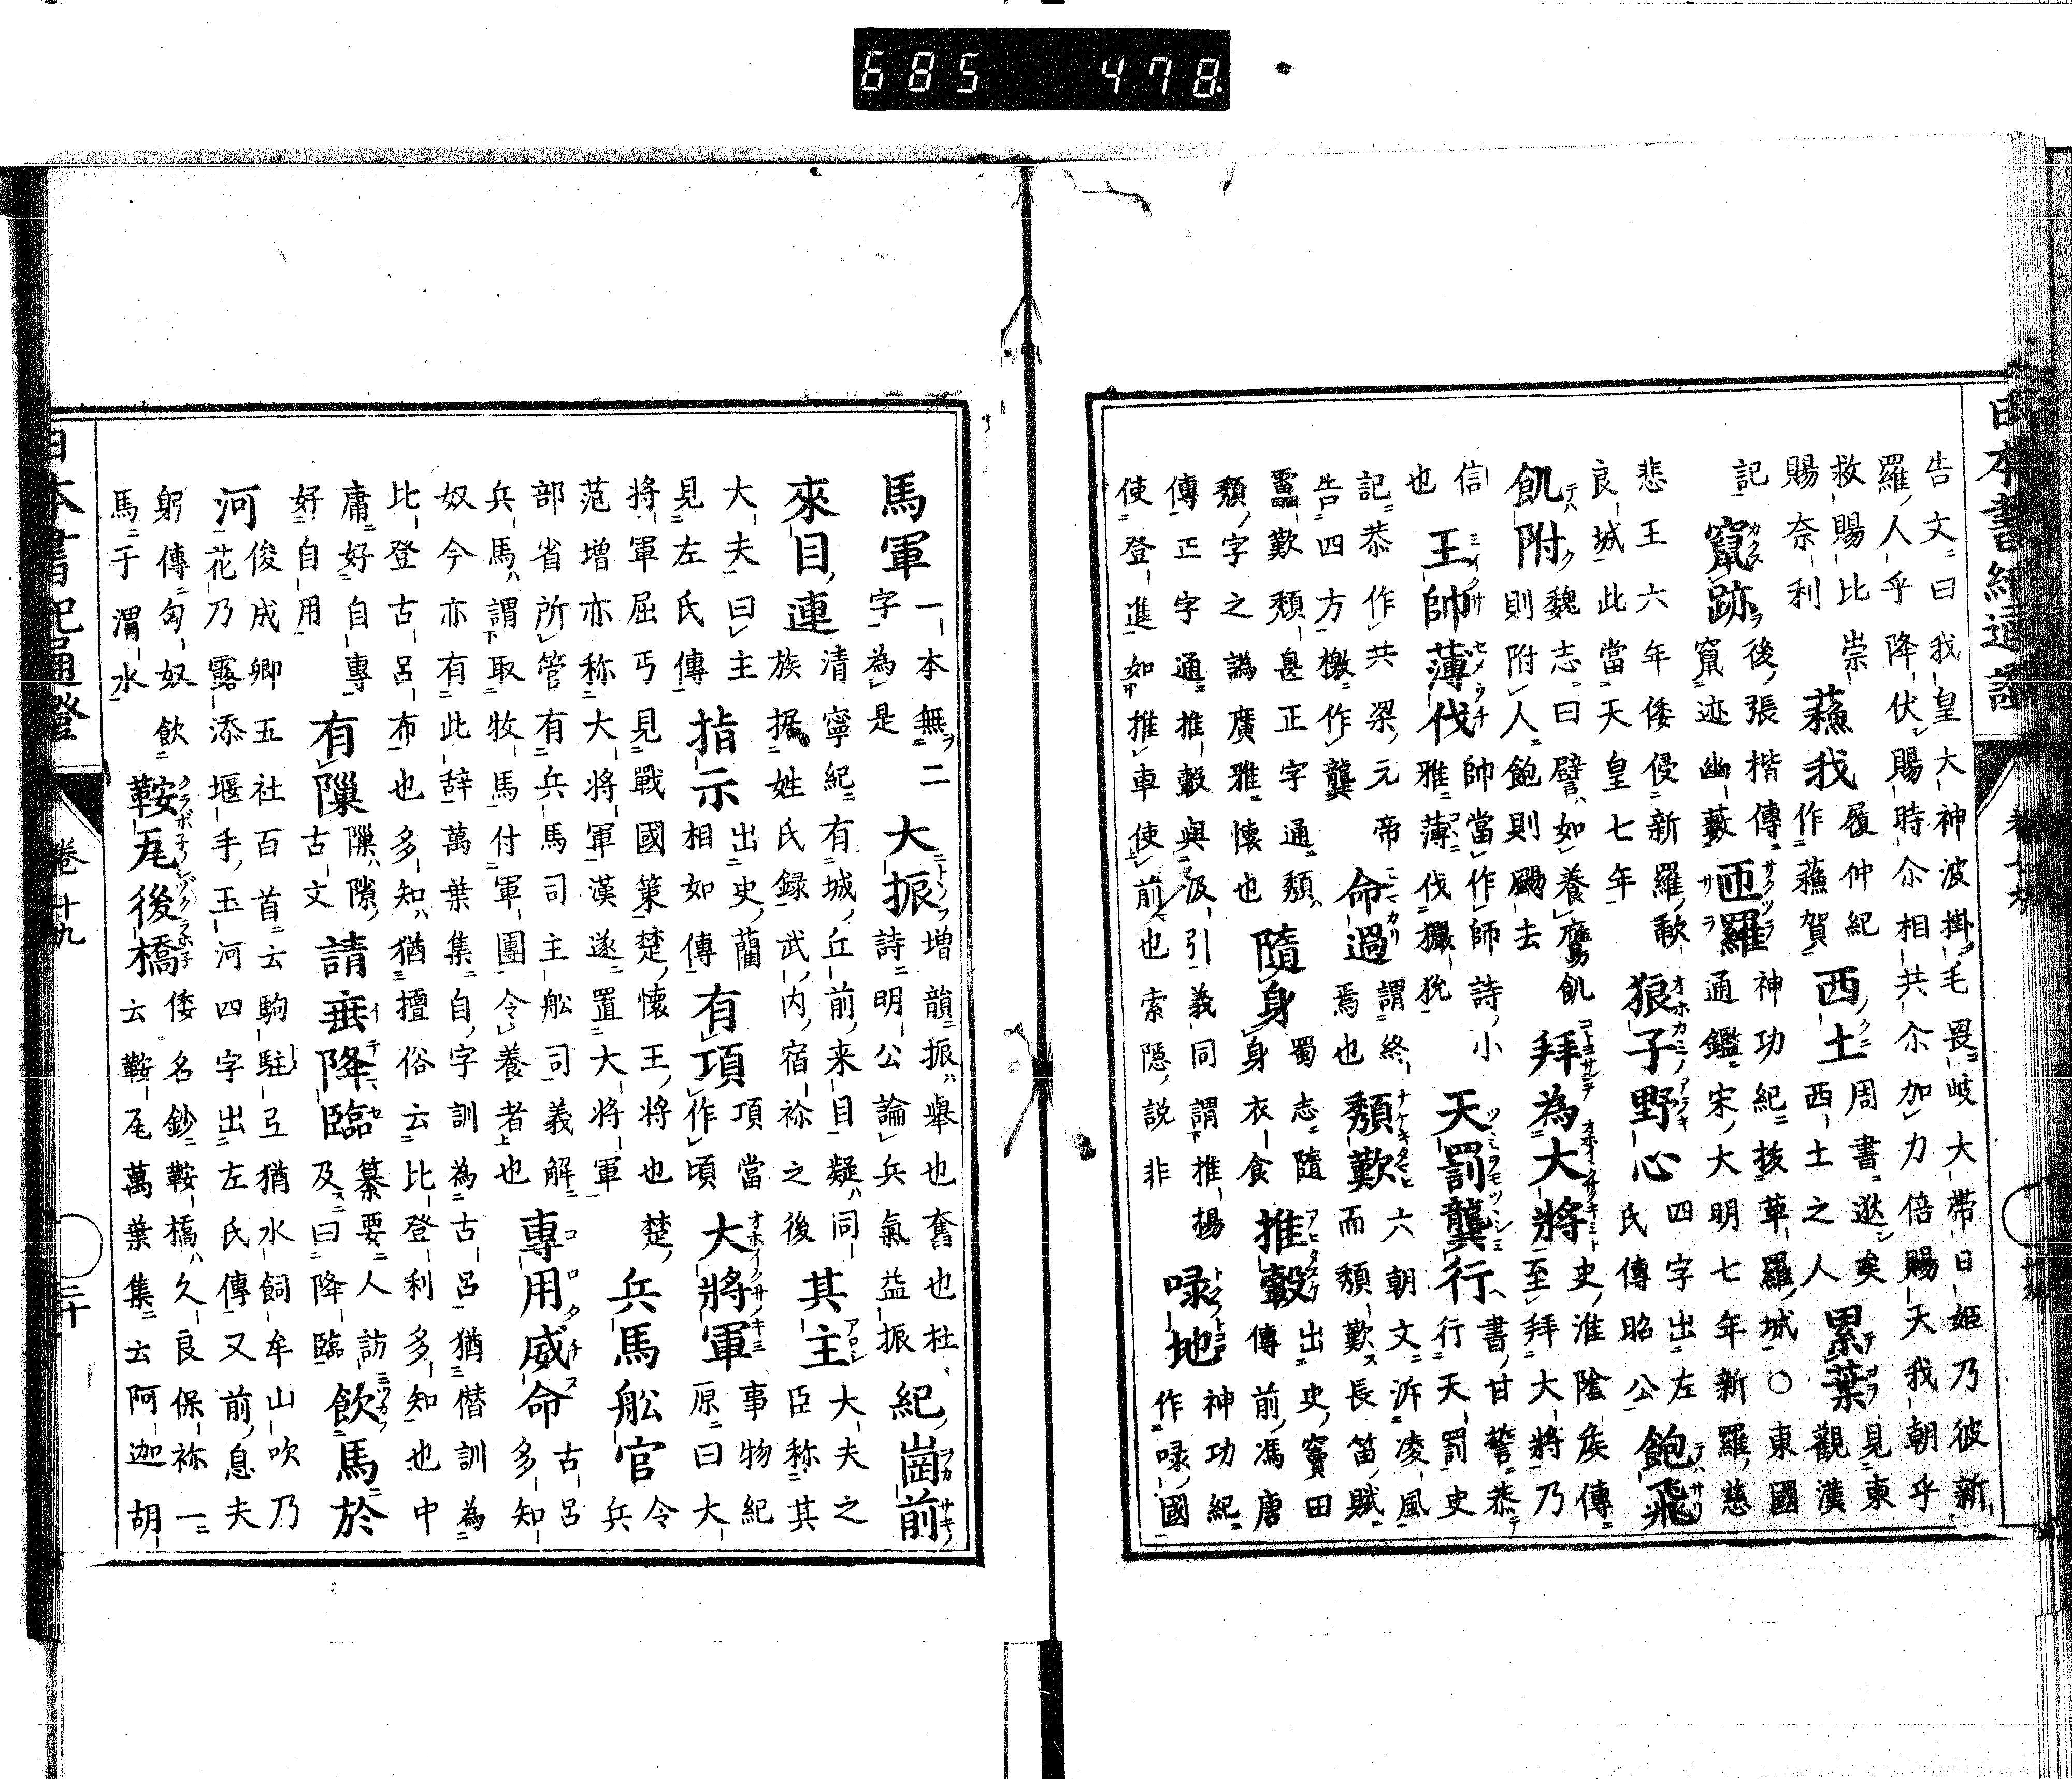 685 478
日本書紀通證
告文曰我皇大神波掛毛畏岐大帶日姫乃彼新
羅人乎降伏賜時尒相共尒加力倍賜天我朝乎
救賜比崇
賜奈利
記
蘓我
履仲紀
作蘓賀
西土
周書逖矣
西土之人
累葉
見東
觀漢
記
竄跡
後張楷傳
竄迹幽藪
匝羅
神功紀拔草羅城〇東國
通鑑宋大明七年新羅慈
悲王六年倭侵新羅歃
良城此當天皇七年
狼子野心
四字出左
氏傳昭公
飽飛
飢附
魏志曰譬如養鷹飢
則附人飽則颺去
拜為大將
史淮陰矦傳
至拜大將乃
信
也
王帥薄伐
帥當作師詩小
雅薄伐玁狁
天罰龔行
書甘誓恭
行行天罰史
記恭作共梁元帝
告四方檄作龔
命過
謂終
焉也
頽歎
六朝文泝凌風
而頽歎長笛賦
靁歎頽息正字通頽
頽字之譌廣雅懷也
隨身
蜀志隨
身衣食
推轂
出史竇田
傳前馮唐
傳正字通推轂與汲引義同謂推揚
使登進如推車使前也索隱説非
㖨地
神功紀
作㖨國
馬軍
一本無二
字為是
大振
増韻振擧也奮也杜
詩明公論兵氣益振
紀崗前
來目連
清寧紀有城丘前来目疑同
族据姓氏録武内宿祢之後
其主
大夫之
臣称其
大夫曰主
見左氏傳
指示
出史藺
相如傳
有項
項當
作頃
大將軍
事物紀
原曰大
將軍屈丐見戰國策楚懷王將也楚
范増亦称大將軍漢遂置大將軍
兵馬舩官
令
兵
部省所管有兵馬司主舩司義解
兵馬謂取牧馬付軍團令養者也
專用威命
古呂
多知
奴今亦有此辞萬葉集自字訓為古呂猶僣訓為
比登古呂布也多知猶擅俗云比登利多知也中
庸好自專
好自用
有隟
隟隙
古文
請垂降臨
纂要人訪
及曰降臨
飲馬於
河
俊成卿五社百首云駒駐弖猶水飼牟山吹乃
花乃露添堰手玉河四字出左氏傳又前息夫
躬傳匈奴飲
馬于渭水
鞍瓦後橋
倭名鈔鞍橋久良保祢一
云鞍瓦萬葉集云阿迦胡
日本書紀通證
卷十九
三十